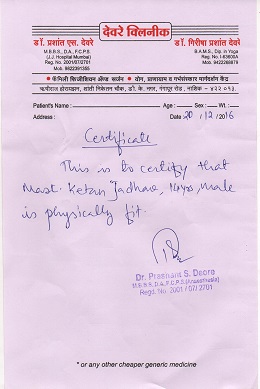 देवरे क्लिनीक
डॉ. प्रशांत एस. देवरे
M.B.B.S., D.A., F.C.P.S.
(J.J. Hospital Mumbai)
Reg. No. 2001/07/2701
Mob. 9822361355
डॉ. गिरीषा प्रशांत देवरे
B.A.M.S., Dip. in Yoga
Reg. No.
Mob.
फॅमिली फिजीशियन ॲण्ड सर्जन
योग, प्राणायाम व गर्भसंस्कार मार्गदर्शन केंद्र
शांती निकेतन चौक, डी. के. नगर, गंगापूर रोड, नाशिक - ४२२ ०१३.
Patient's Name : Age : Sex : Wt. :
Address : Date 20/12/2016
Certificate
This is to certify that
Mast. Ketan Jadhav, male
is physically fit.
Dr. Prashant S. Deore
M.B.B.S., D.A., F.C.P.S. (Anaesthesia)
Regd. No. 2001 / 07/ 2701
* or any other cheaper generic medicine